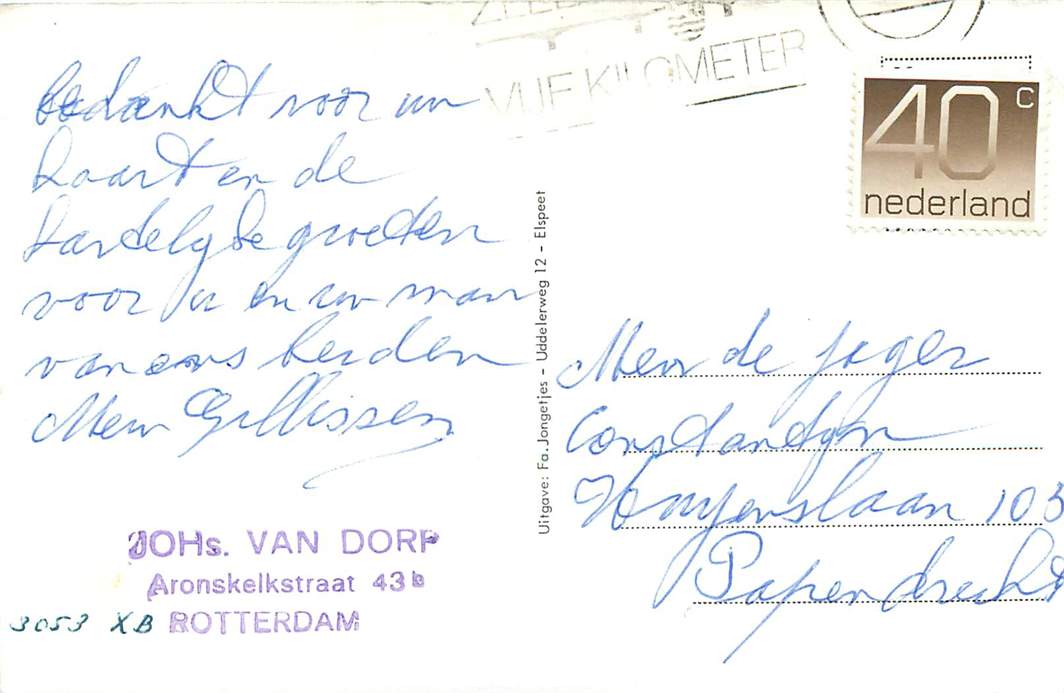 VIJF KILOMETER
40 c
nederland
Bedankt voor uw
kaart en de
hartelyke groeten
voor u en uw man
van ons beiden
Mevr Gillissen
Uitgave: Fa. Jongetjes - Uddelerweg 12 - Elspeet
Mevr de Jager
Constantyn
Huygenslaan 103
Papendrecht
JOHs. VAN DORP
Aronskelkstraat 43b
3053 XB ROTTERDAM